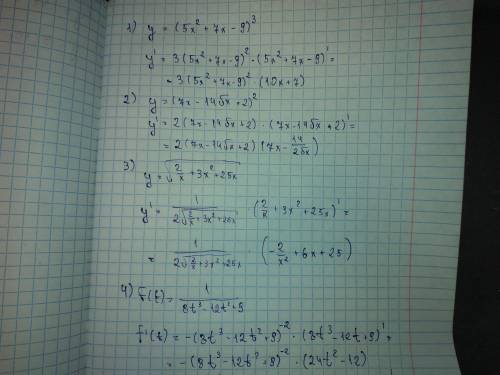 1) y = (5x² + 7x - 9)³
y' = 3(5x² + 7x - 9)² · (5x² + 7x - 9)' =
= 3(5x² + 7x - 9)² · (10x + 7)
2) y = (7x - 14√x + 2)²
y' = 2(7x - 14√x + 2) · (7x - 14√x + 2)' =
= 2(7x - 14√x + 2) (7x - 14/(2√x))
3) y = √(2/x + 3x² + 25x)
y' = 1/(2√(2/x + 3x² + 25x)) · (2/x + 3x² + 25x)' =
= 1/(2√(2/x + 3x² + 25x)) · (-2/x² + 6x + 25)
4) f(t) = 1/(8t³ - 12t² + 9)
f'(t) = -(8t³ - 12t² + 9)⁻² · (8t³ - 12t + 9)' =
= -(8t³ - 12t² + 9)⁻² · (24t² - 12)